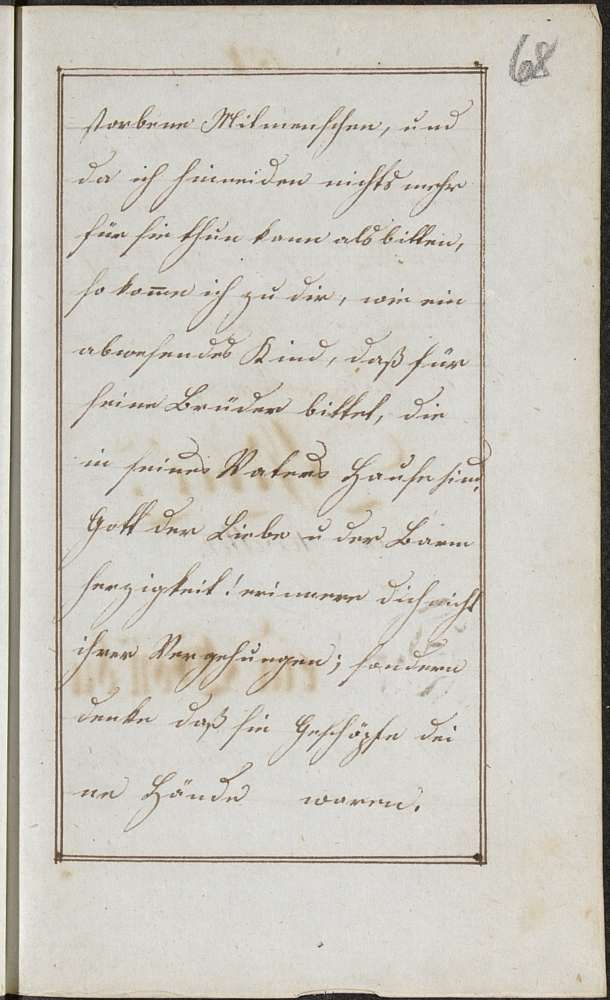 68
storbene Mitmenschen, und
da ich hinnieden nichts mehr
für sie thun kann als bitten,
so kom̅e ich zu dir, wie ein
abwesendes Kind, daß für
seine Brüder bittet, die
in seines Vaters Hause sind.
Gott der Liebe u der Barm
herzigkeit! erinnere dich nicht
ihrer Vergehungen; sondern
denke daß sie Geschöpfe dei
ne Hände waren.